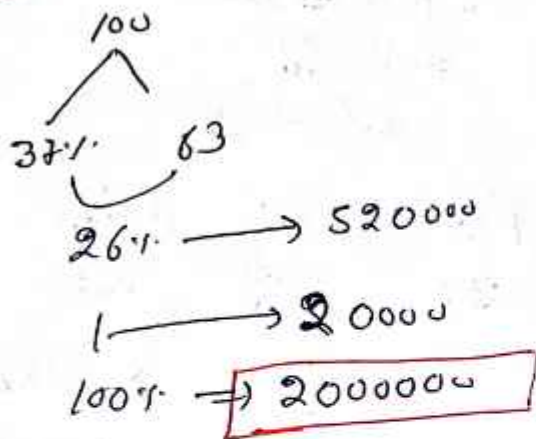 100
37% 63
26% → 520000
1 → 20000
100% ⇒ 2000000